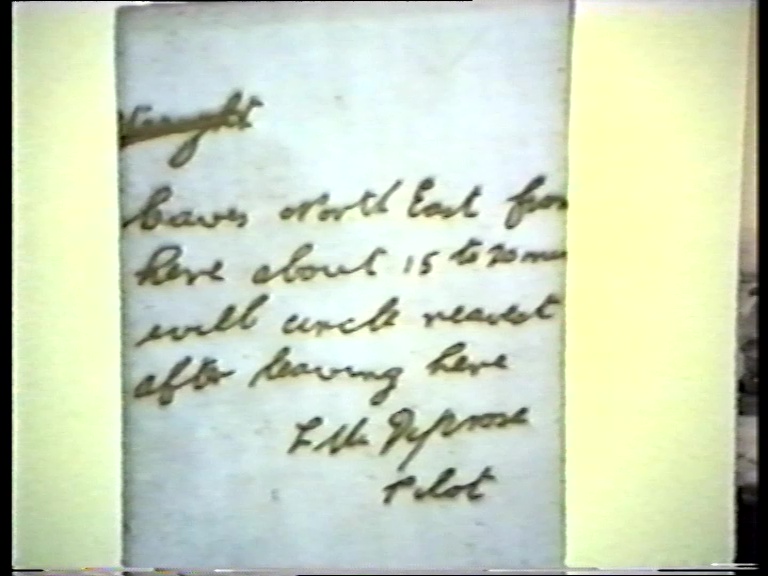 Caves North East from
here about 15 to 20 m
will circle nearest
after leaving here
Pilot